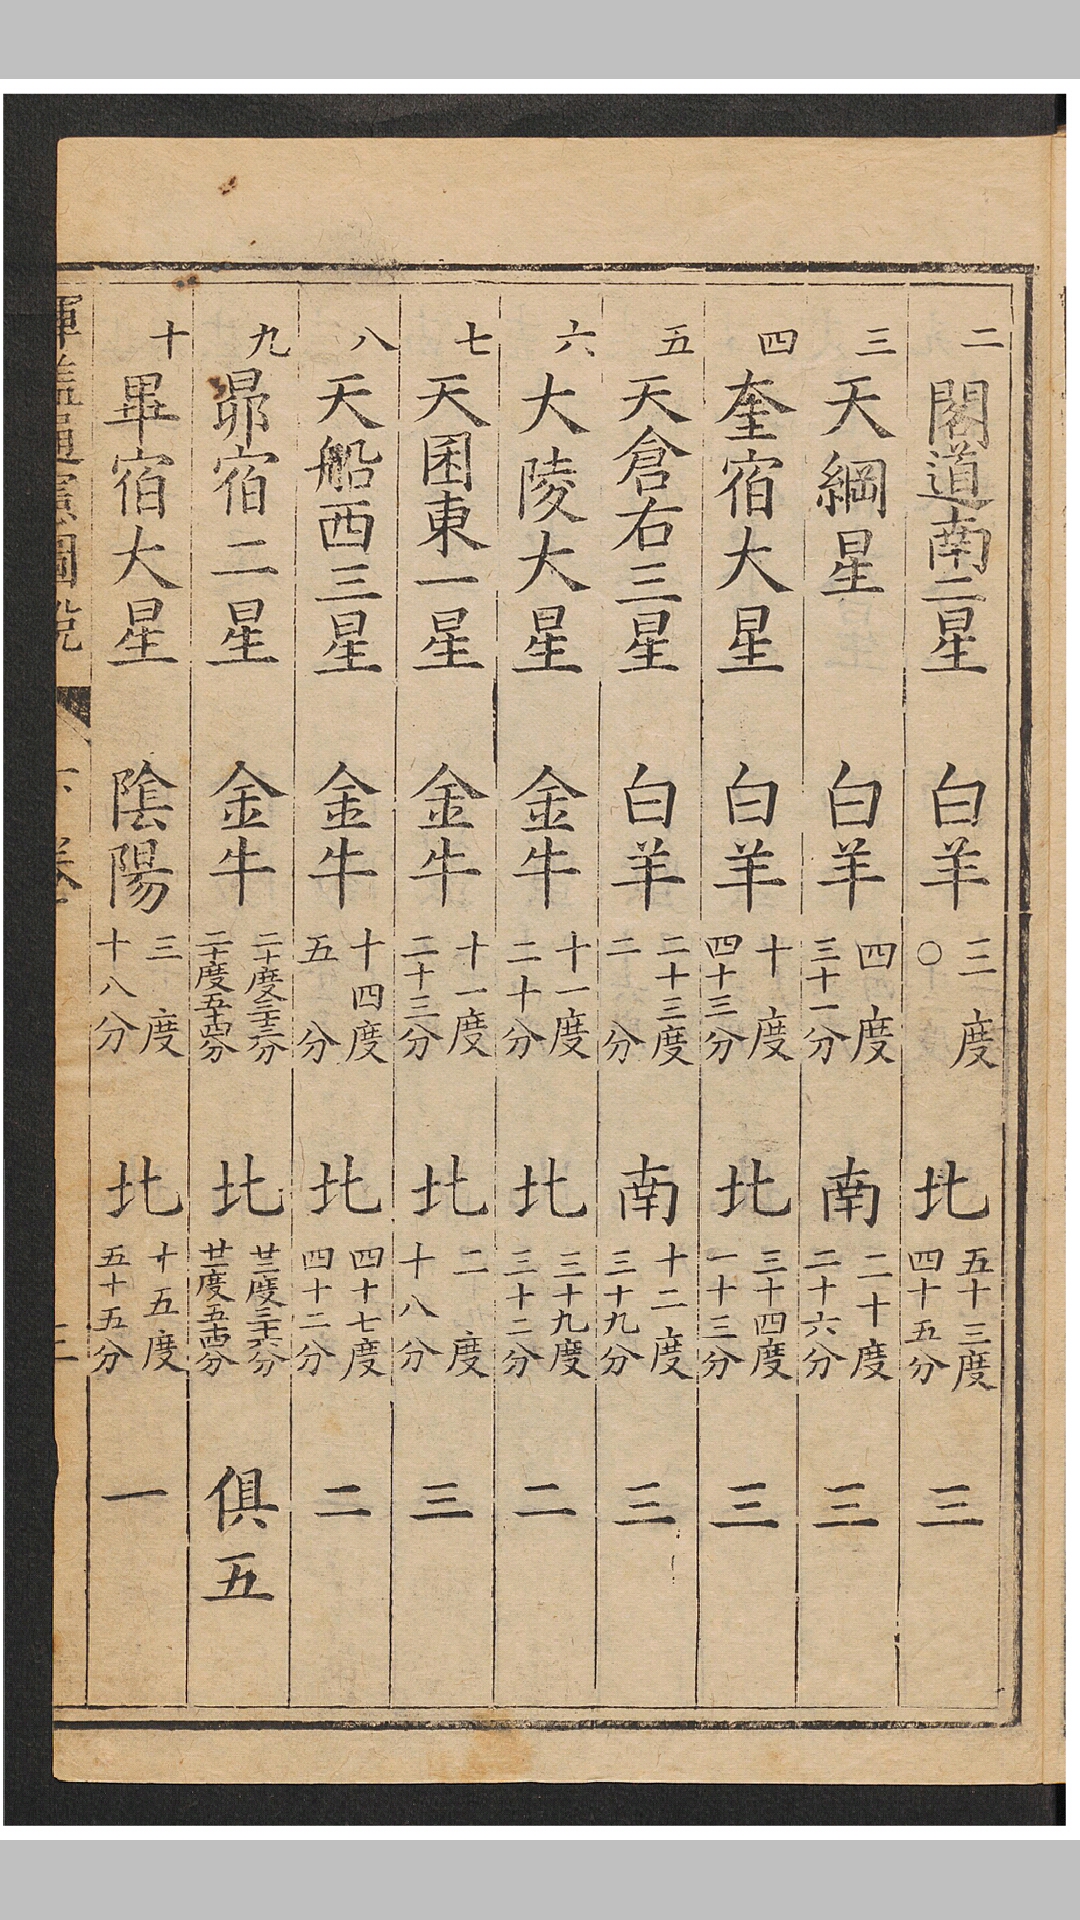 二 閣道南二星 白羊 三度〇 北 五十三度四十五分 三
三 天綱星 白羊 四度三十一分 南 二十度二十六分 三
四 奎宿大星 白羊 十度四十三分 北 三十四度一十三分 三
五 天倉右三星 白羊 二十三度二分 南 十二度三十九分 三
六 大陵大星 金牛 十一度二十分 北 三十九度三十二分 二
七 天囷東一星 金牛 十一度二十三分 北 二度十八分 三
八 天船西三星 金牛 十四度五分 北 四十七度四十二分 二
九 昴宿二星 金牛 二十度三十三分二十度五十四分 北 廿二度三十六分廿二度五十四分 俱五
十 畢宿大星 陰陽 三度十八分 北 十五度五十五分 一
渾蓋通憲圖說 下卷 三